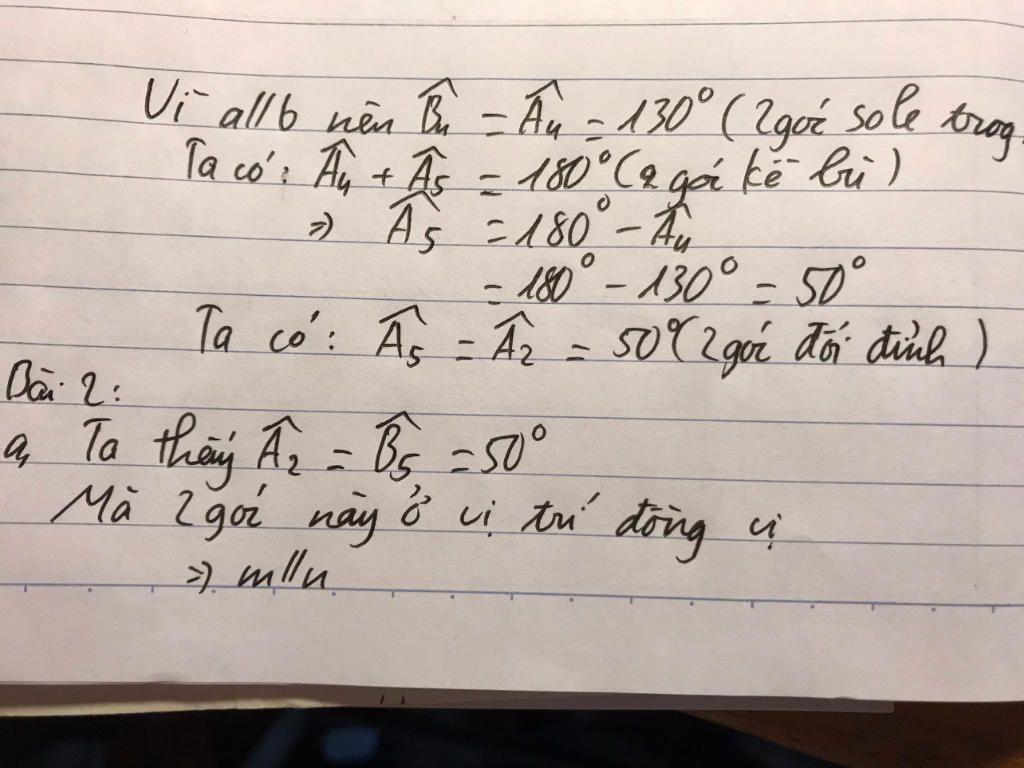 Vì a//b nên B̂₄ = Â₄ = 130° (2 góc sole trog
Ta có: Â₄ + Â₅ = 180° (2 góc kề bù)
=> Â₅ = 180° - Â₄
= 180° - 130° = 50°
Ta có: Â₅ = Â₂ = 50° (2 góc đối đỉnh)
Bài 2:
a, Ta thấy Â₂ = B̂₅ = 50°
Mà 2 góc này ở vị trí đồng vị
=> m//n